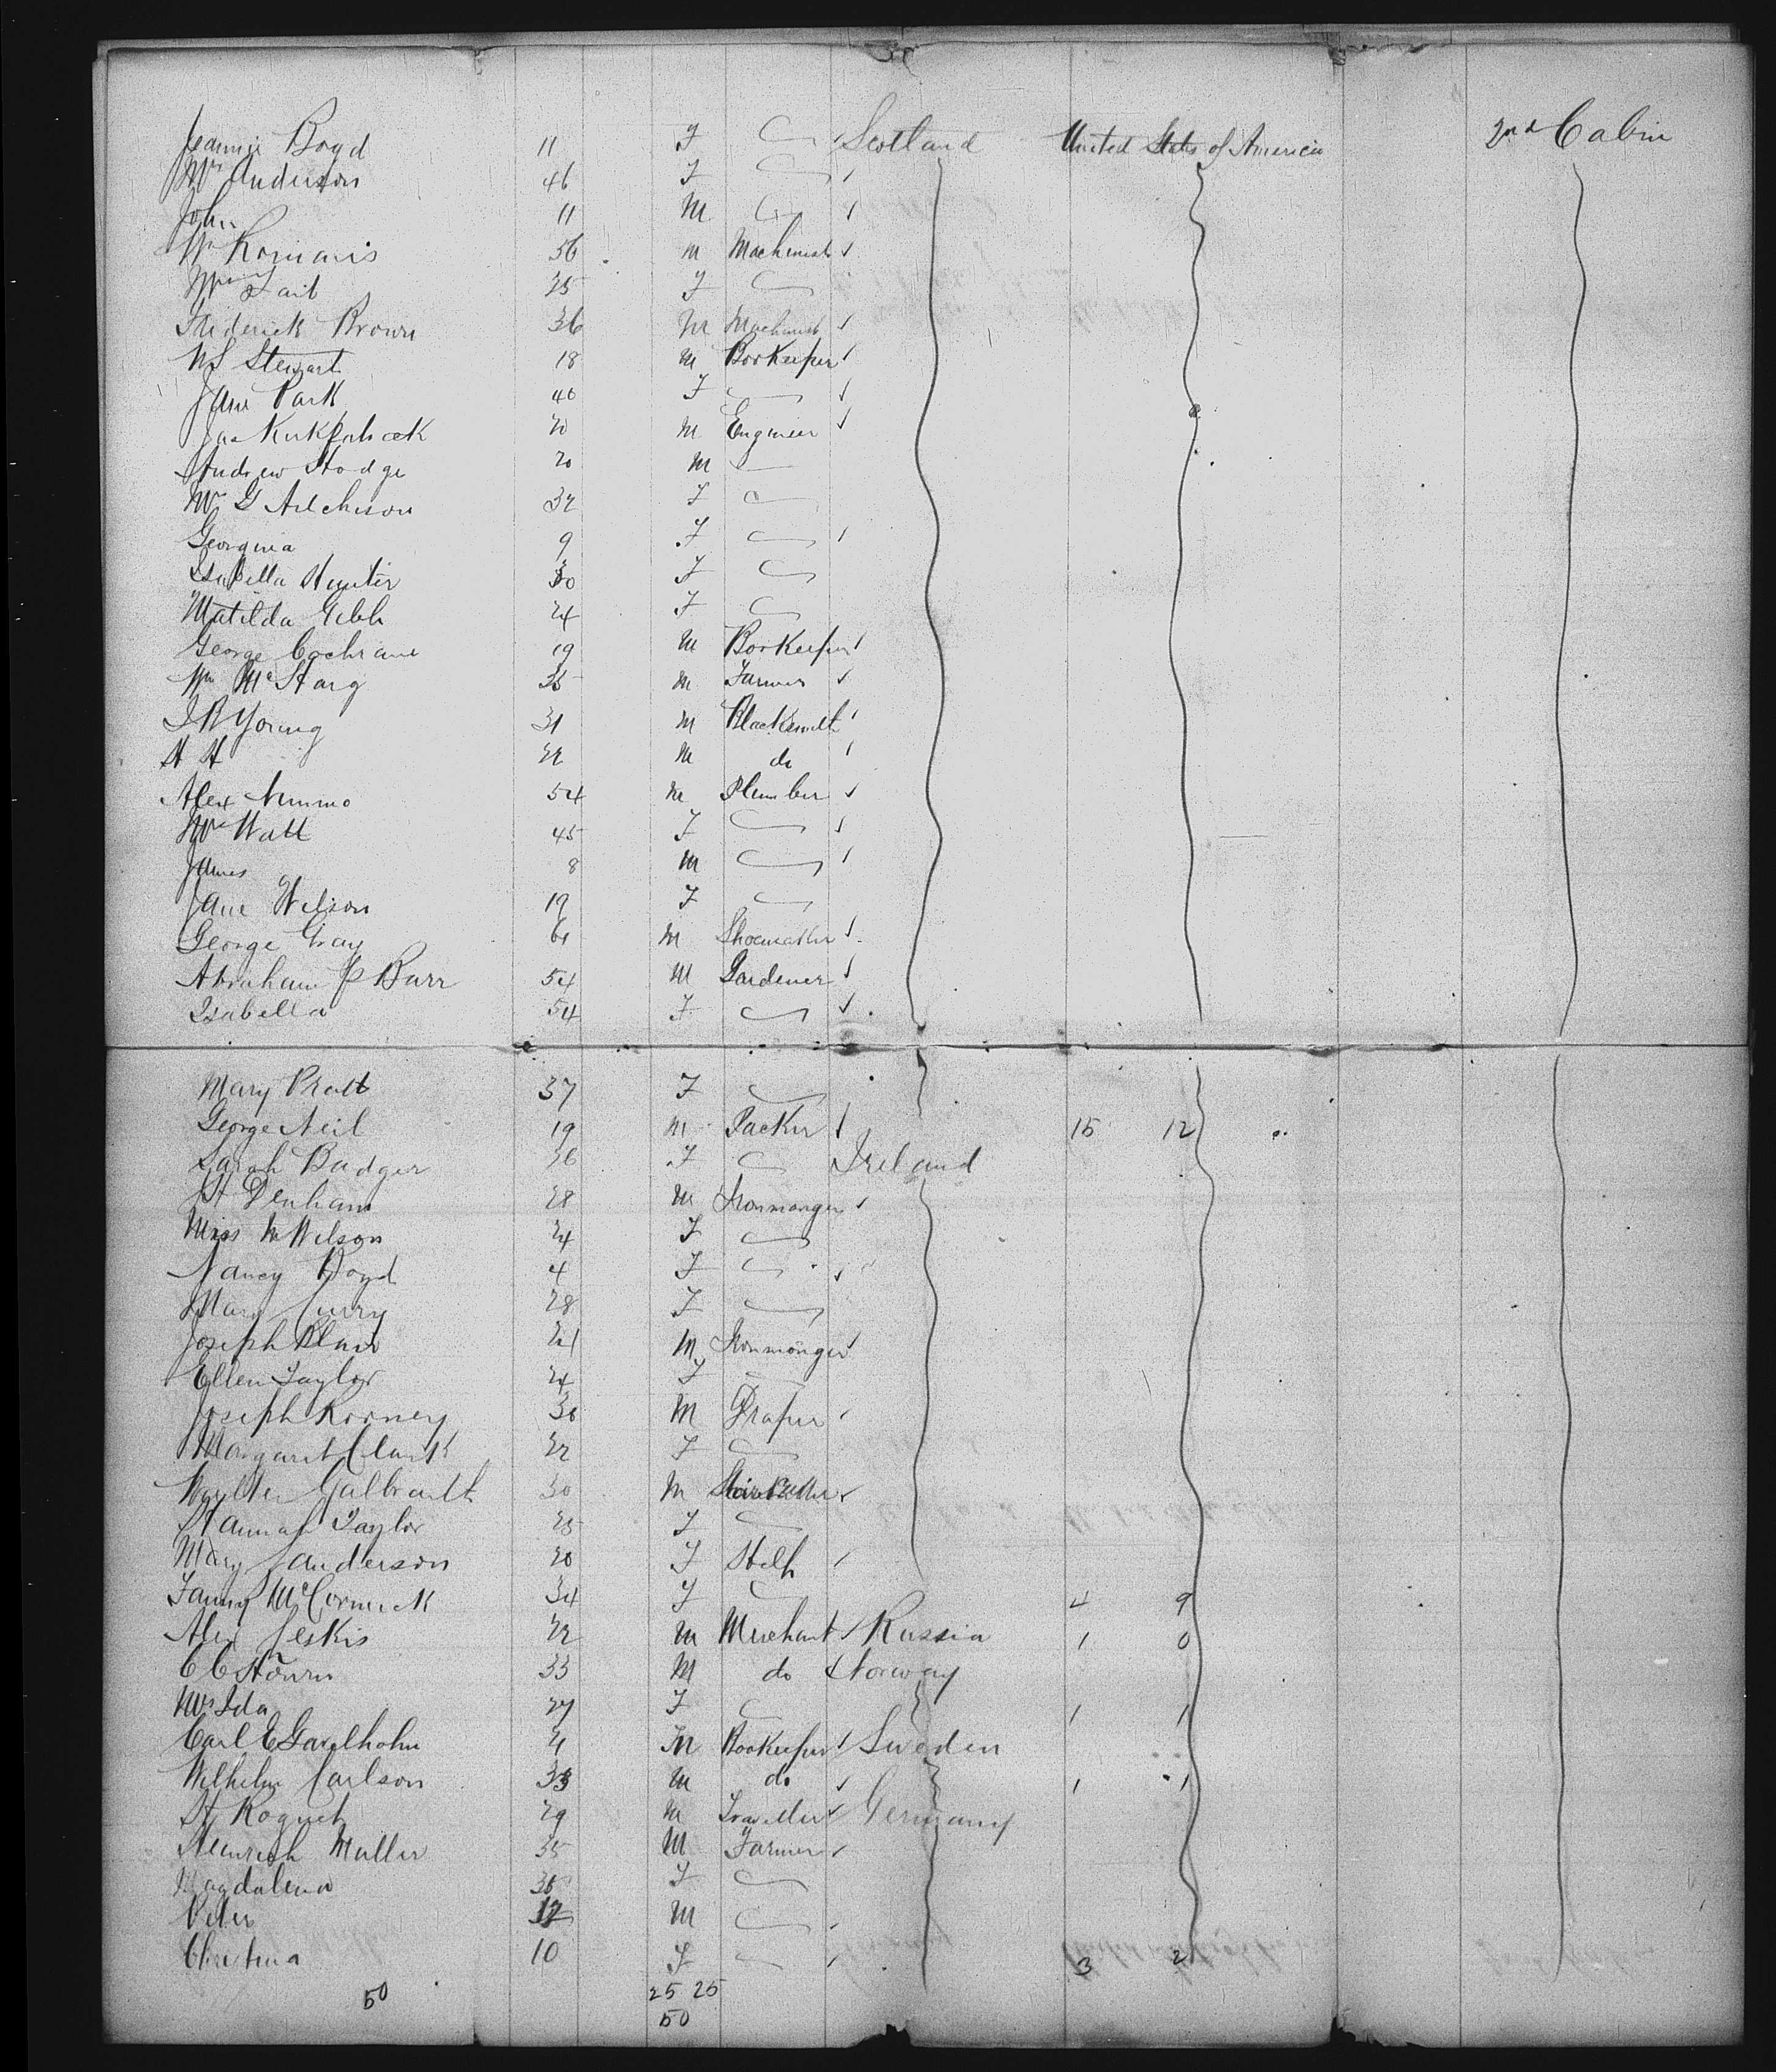 Jeannie Boyd 11 F Scotland United States of America 2nd Cabin
Mrs Anderson 46 F
John 11 M
Wm Romanis 56 M Machinist
Mrs Tait 25 F
Frederick Brown 36 M Machinist
W S Stewart 18 M Bookeeper
Jane Park 40 F
Jas Kirkpatrick 20 M Engineer
Andrew Hodge 20 M
Mrs G Aitcheson 32 F
Georgina 9 F
Isabella Hunter 30 F
Matilda Gibb 24 F
George Cochrane 19 M Bookeeper
Wm Mc Harg 35 M Farmer
J R Young 31 M Blacksmith
H H 22 M do
Alex Nimmo 54 M Plumber
Mrs Watt 45 F
James 8 M
Jane Wilson 19 F
George Gray 61 M Shoemaker
Abraham P Barr 54 M Gardener
Isabella 54 F
Mary Pratt 37 F
George Neil 19 M Packer 15 12
Sarah Badger 36 F Ireland
H Denham 28 M Ironmonger
Miss M Wilson 24 F
Nancy Boyd 4 F
Mary Curry 28 F
Joseph Blair 21 M Ironmonger
Ellen Taylor 24 F
Joseph Rooney 30 M Draper
Margaret Clark 22 F
Walter Galbraith 30 M
Hannah Taylor 25 F
Mary Sanderson 20 F Help
Fanny McCormick 34 F 4 9
Alex Jeskis 22 M Merchant Russia 1 0
C C 33 M do Norway
Mrs Ida 27 F 1 1
Carl E 21 M Bookeeper Sweden
Wilhelm Carlson 33 M do 1 1
H Roguet 29 M Traveller Germany
Heinrich Muller 35 M Farmer
Magdalena 36 F
Peter 12 M
Christina 10 F 3 2
50 25 25
50